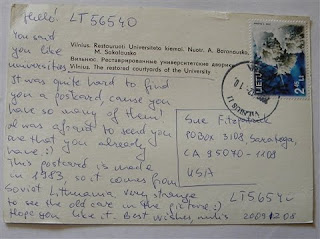 Hello! LT56540
You said
you like
universities.
It was quite hard to find
you a postcard, cause you
have so many of them!
I was afraid to send you
one that you already
have :)
This postcard is made
in 1983, so it comes from
Soviet Lithuania, very strange
to see the old cars in the picture :)
Hope you like it. Best wishes,
2009 12 08
Vilnius. Restauruoti Universiteto kiemai. Nuotr. A. Baranausko,
M. Sakalausko
Вильнюс. Реставрированные университетские дворики
Vilnius. The restored courtyards of the University
LIETUVA
VILNIUS
Sue Fitzpatrick
PO BOX 3108, Saratoga,
CA 95070-1108
USA
LT56540